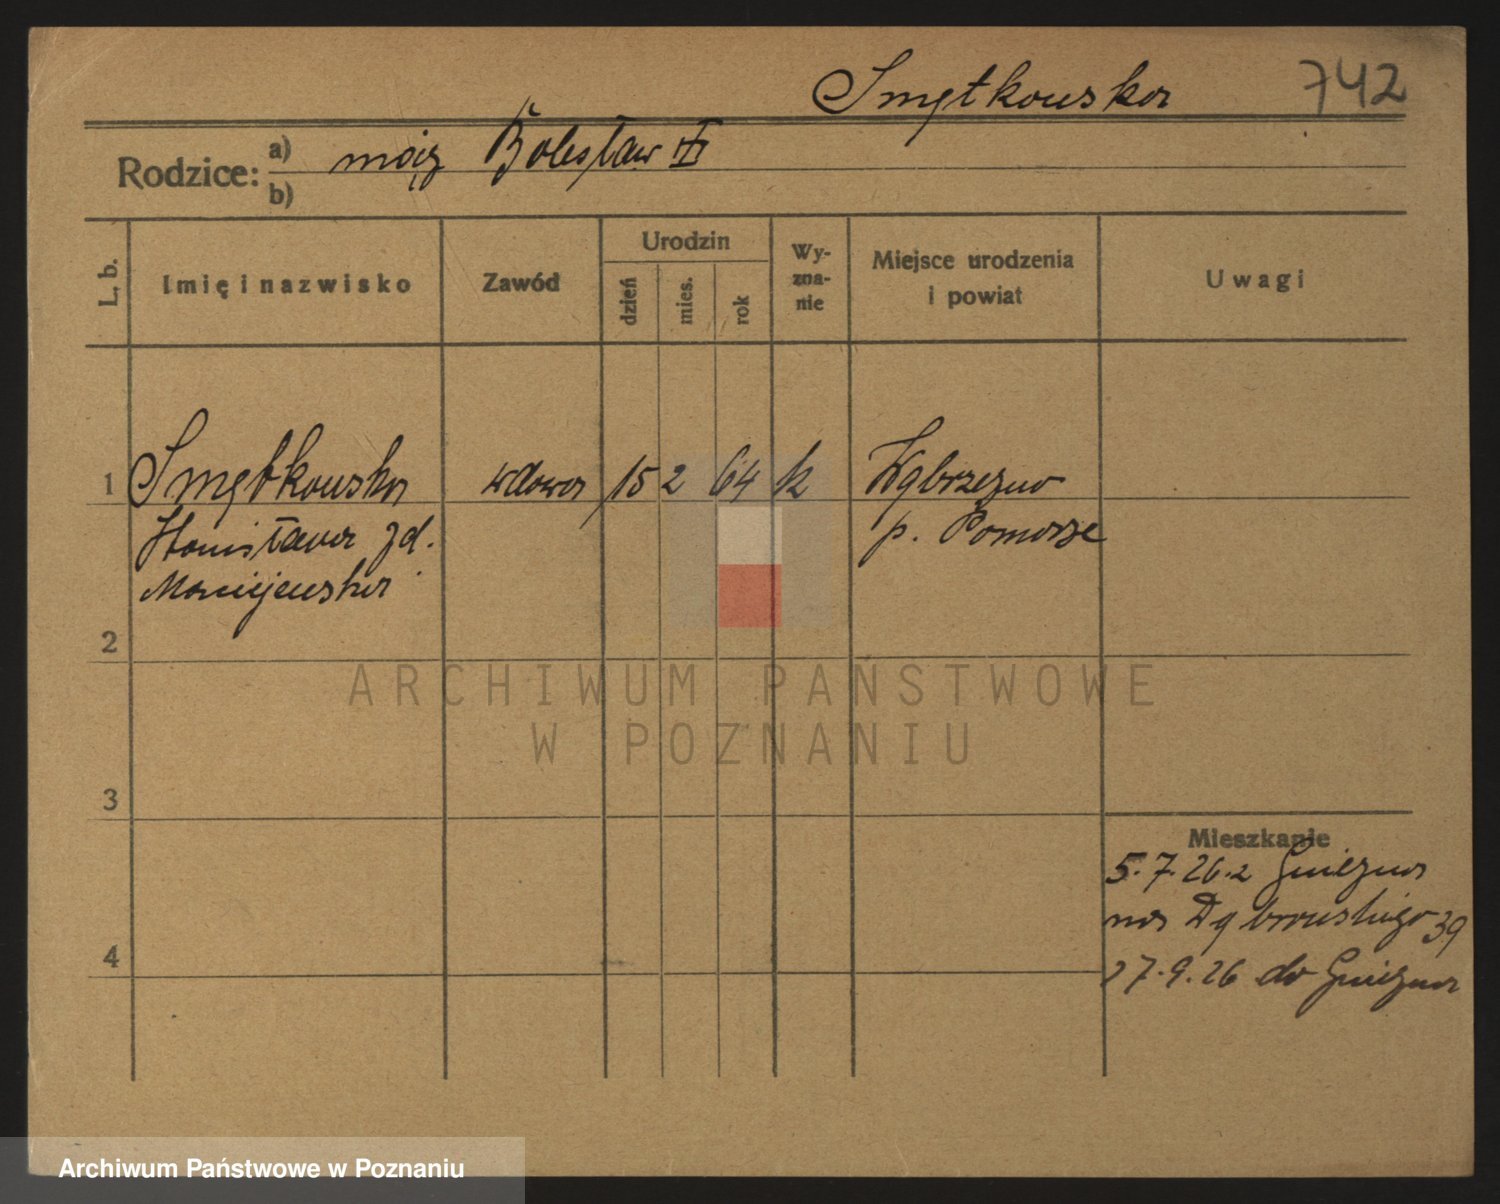 Smętkowska 742
Rodzice: a) mąż Bolesław
b)
L. b. Imię i nazwisko Zawód Urodzin dzień mies. rok Wy-zna-nie Miejsce urodzenia i powiat Uwagi
1 Smętkowska wdowa 15 2 64 k Wąbrzeźno
Stanisława zd. p. Pomorze
Maciejewska
2
ARCHIWUM PAŃSTWOWE
W POZNANIU
3
Mieszkanie
5.7.26. z Gniezna
na Dąbrowskiego 39
4
27.9.26 do Gniezna
Archiwum Państwowe w Poznaniu